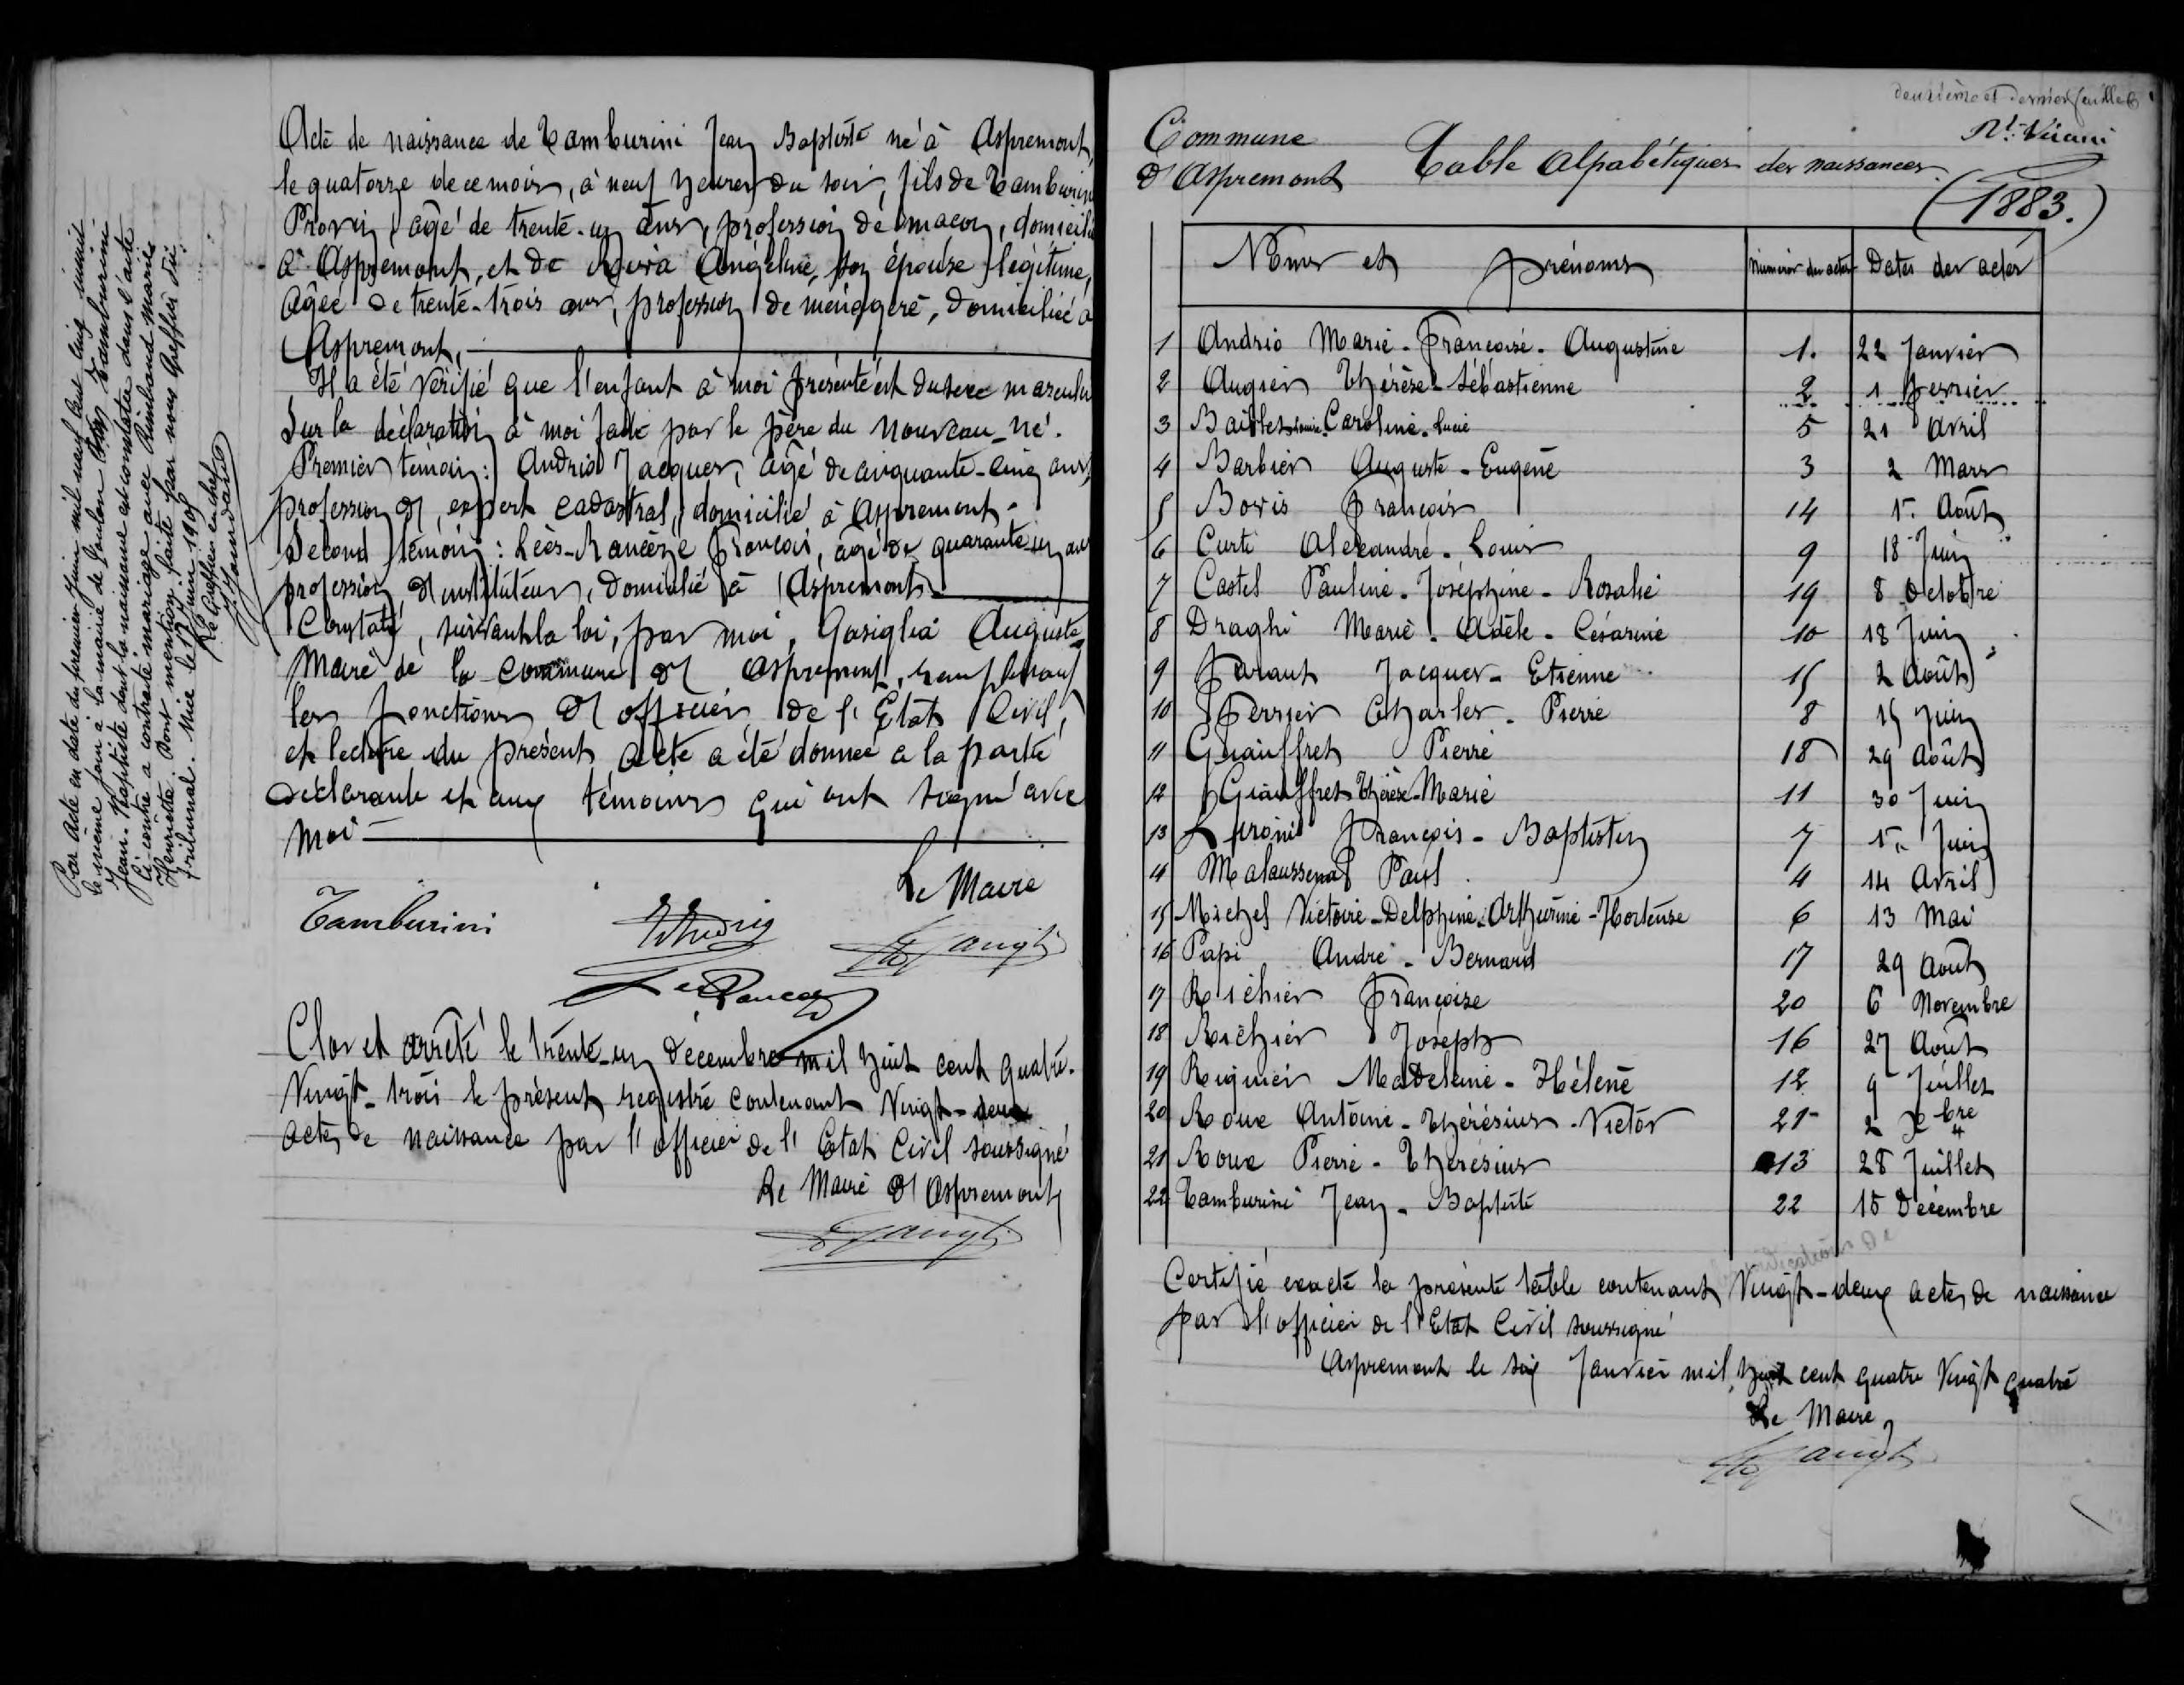 Acte de naissance de Tamburini Jean Baptiste né à Aspremont,
le quatorze de ce mois, à neuf heures du soir, fils de Tamburini
âgé de trente-un ans, profession de maçon, domicilié
à Aspremont, et de Angeline, son épouse légitime,
âgée de trente-trois ans, profession de ménagère, domiciliée à
Aspremont,
Il a été vérifié que l'enfant à moi présenté est du sexe masculin
Sur la déclaration à moi faite par le père du nouveau-né.
Premier témoin: Andrio Jacques, âgé de cinquante-cinq ans,
profession d', expert cadastral, domicilié à Aspremont-
Second témoin: François, âgé de quarante-un ans
profession d'instituteur, domicilié à Aspremont
Constaté, suivant la loi, par moi, Gasiglia Auguste
Maire de la commune d' Aspremont, remplissant
les fonctions d'officier de l'Etat Civil,
et lecture du présent acte a été donnée a la partie
déclarante et aux témoins qui ont signé avec
moi
Le Maire
Tamburini
Clos et arrêté le trente-un décembre mil huit cent quatre-
Vingt-trois le présent registre contenant Vingt-deux
actes de naissance par l'officier de l'Etat Civil soussigné
Le Maire d'Aspremont
Par acte en date du premier Juin mil neuf cent cinq inscrit
le même jour à la mairie de Toulon (Var) Tamburini
Jean-Baptiste dont la naissance est constatée dans l'acte
ci-contre a contracté mariage avec Rimbaud Marie
Henriette. Dont mention faite par nous Greffier du
Tribunal. Nice le 17 Juin 1905
Le Greffier en chef
deuxième et dernier feuillet
Commune
d'Aspremont
Table Alpabétiques des naissances.
(1883.)
Noms et prénoms Numéros des actes Dates des actes
1 Andrio Marie-Françoise-Augustine 1. 22 Janvier
2 Augier Thérèse-Sébastienne 2 1 Fevrier
3 Bailet Louise Caroline-Lucie 5 21 Avril
4 Barbier Auguste-Eugène 3 2 Mars
5 Bovis François 14 1er Août
6 Curti Alexandre-Louis 9 18 Juin
7 Castel Pauline-Joséphine-Rosalie 19 8 Octobre
8 Draghi Marie-Adèle-Césarine 10 18 Juin
9 Faraut Jacques-Etienne 15 2 Août
10 Ferrier Charles-Pierre 8 15 Juin
11 Giauffret Pierre 18 29 Août
12 Giauffret Thérèse-Marie 11 30 Juin
13 François-Baptistin 7 1er Juin
14 Malaussena Paul 4 14 Avril
15 Michel Victoire-Delphine-Arthurine-Hortense 6 13 Mai
16 Papi André-Bernard 17 29 Août
17 Richier Françoise 20 6 Novembre
18 Richier Joseph 16 27 Août
19 Riguier Madeleine-Hélène 12 9 Juillet
20 Roux Antoine-Thérésius-Victor 21 2 Xbre
21 Roux Pierre-Thérésius 13 28 Juillet
22 Tamburini Jean-Baptiste 22 15 Décembre
Certifié exacte la présente table contenant Vingt-deux actes de naissance
par l'officier de l'Etat Civil soussigné
Aspremont le six Janvier mil huit cent quatre Vingt quatre
Le Maire